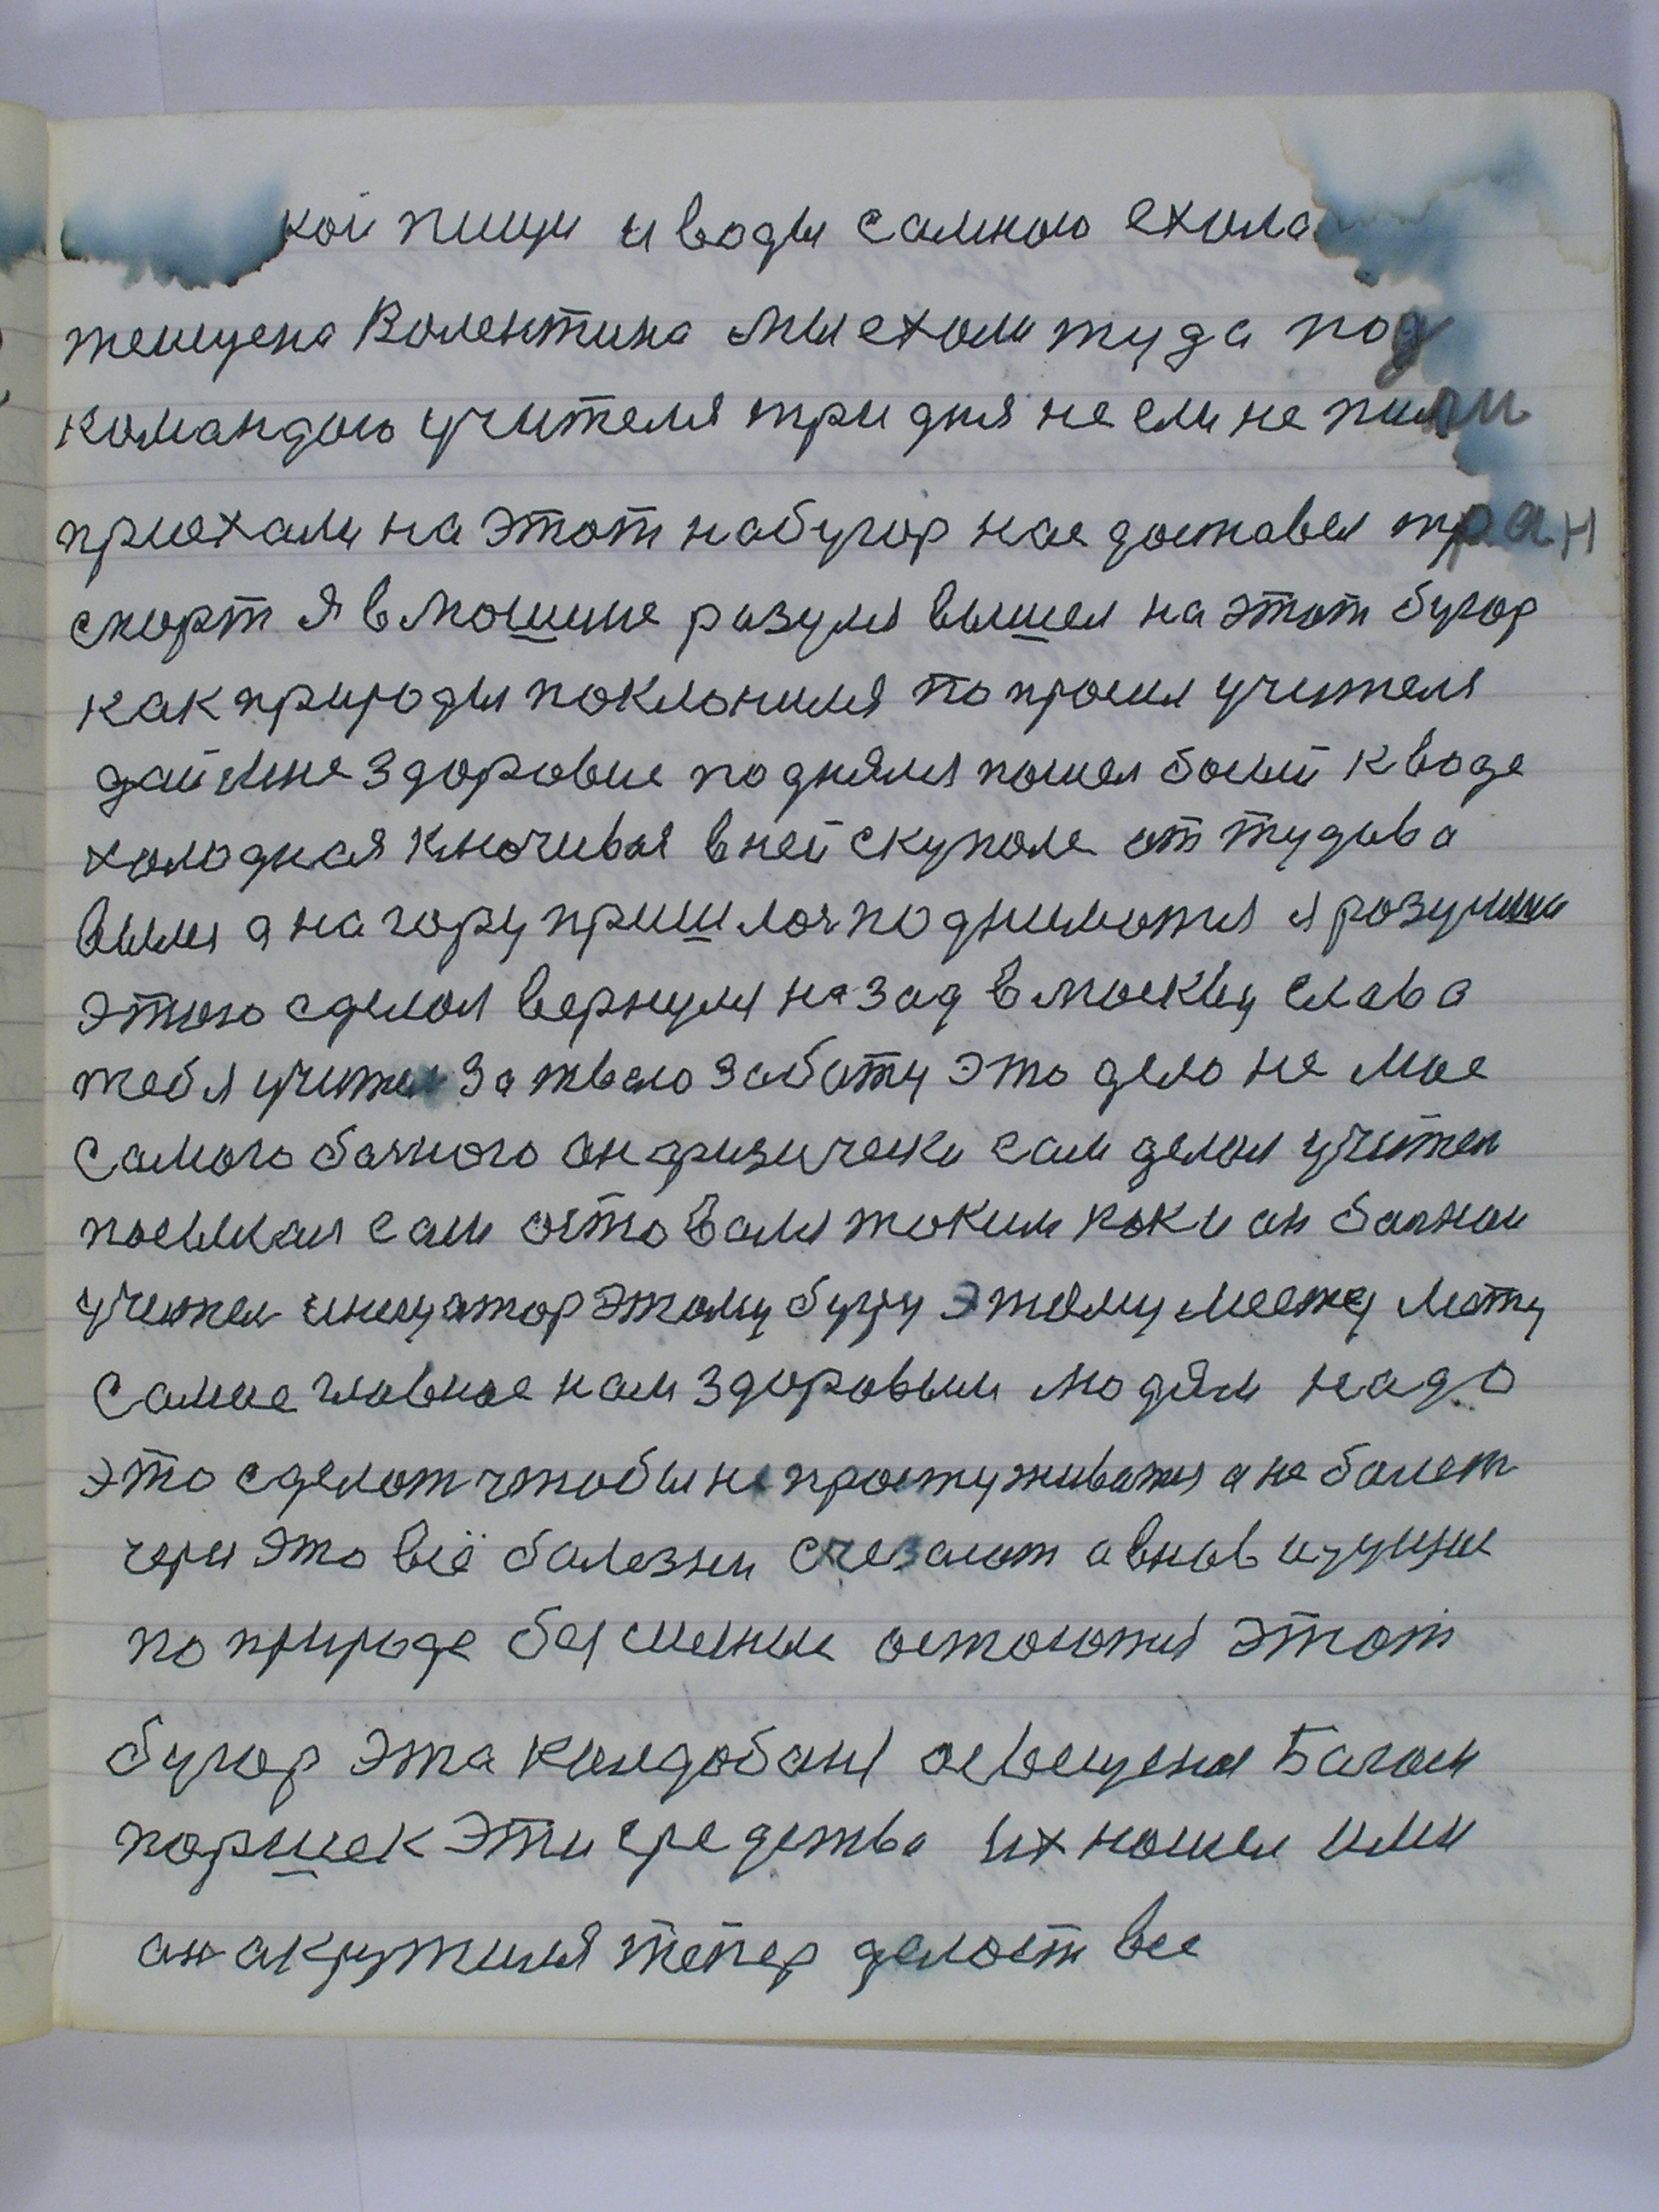 кой пищи и воды самною ехала
женщена Волентина мы ехали туда под
командою учителя три дня не ели не пили
приехали на этот набугор нас доставел тран
спорт я в мошине разулся вышел на этот бугор
как природы поклонился попросил учителя
дай мне здоровие поднялся пошел босый к воде
холодная ключивая в ней скупалс от тудыва
вылез а на гору пришлось подниматся я розумши
этого сделал вернулся назад в москву слава
тебя учител за твою заботу это дело не мое
самого больного он физически сам делал учител
посылал сам оставался таким как и он больной
учител инецатор этому бугру этому месту
самое главное нам здоровым людям надо
это сделат чтобы не простуживатся а не болет
через это всё болезни счезают а внов идущие
по природе бессмение остаются этот
бугор эта колдобаня освещеная Богом
паршек эти средства их нашел ими
он окрутился тепер делает все